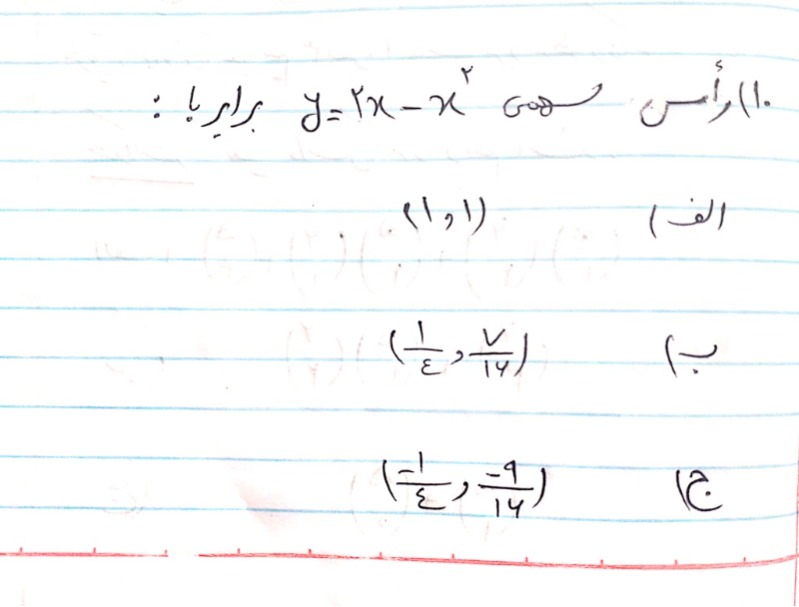 ۱۰) رأس سهمی y = ۲x − x^۲ برابر با :
الف) (۱ , ۱)
ب) (۱/٤ , ۷/۱۶)
ج) (−۱/٤ , −۹/۱۶)